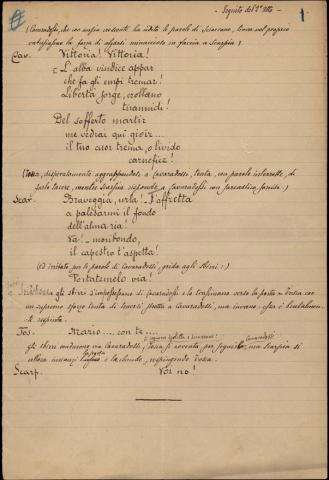 Seguito del 2º Atto
1
(Cavaradossi, che con ansia crescente ha udito le parole di Sciarrone, trova nel proprio
entusiasmo la forza di alzarsi minaccioso in faccia a Scarpia)
Cav. Vittoria! Vittoria!
L'alba vindice appar
che fa gli empi tremar!
Libertà sorge, crollano
tirannidi!
Del sofferto martir
me vedrai quì gioir...
il tuo cuor trema, o livido
carnefice!
(Tosca, disperatamente aggrappandosi a Cavaradossi, tenta, con parole interrotte, di
farlo tacere, mentre Scarpia risponde a Cavaradossi con sarcastico sorriso)
Scar. Braveggia, urla! - T'affretta
a palesarmi il fondo
dell'alma ria!
Va! - moribondo,
il capestro t'aspetta!
(ed irritato per le parole di Cavaradossi, grida agli sbirri:)
Portatemelo via!
gli sbirri s'impossessano di Cavaradossi e lo trascinano verso la porta - Tosca con
un supremo sforzo tenta di tenersi stretta a Cavaradossi, ma invano: essa è brutalmen-
te respinta.
Tos. Mario... con te...
Cavaradossi
gli sbirri conducono via Cavaradossi; Tosca si avventa per seguire, ma Scarpia si
colloca innanzi la porta e la chiude, respingendo Tosca.
Scarp. Voi no!